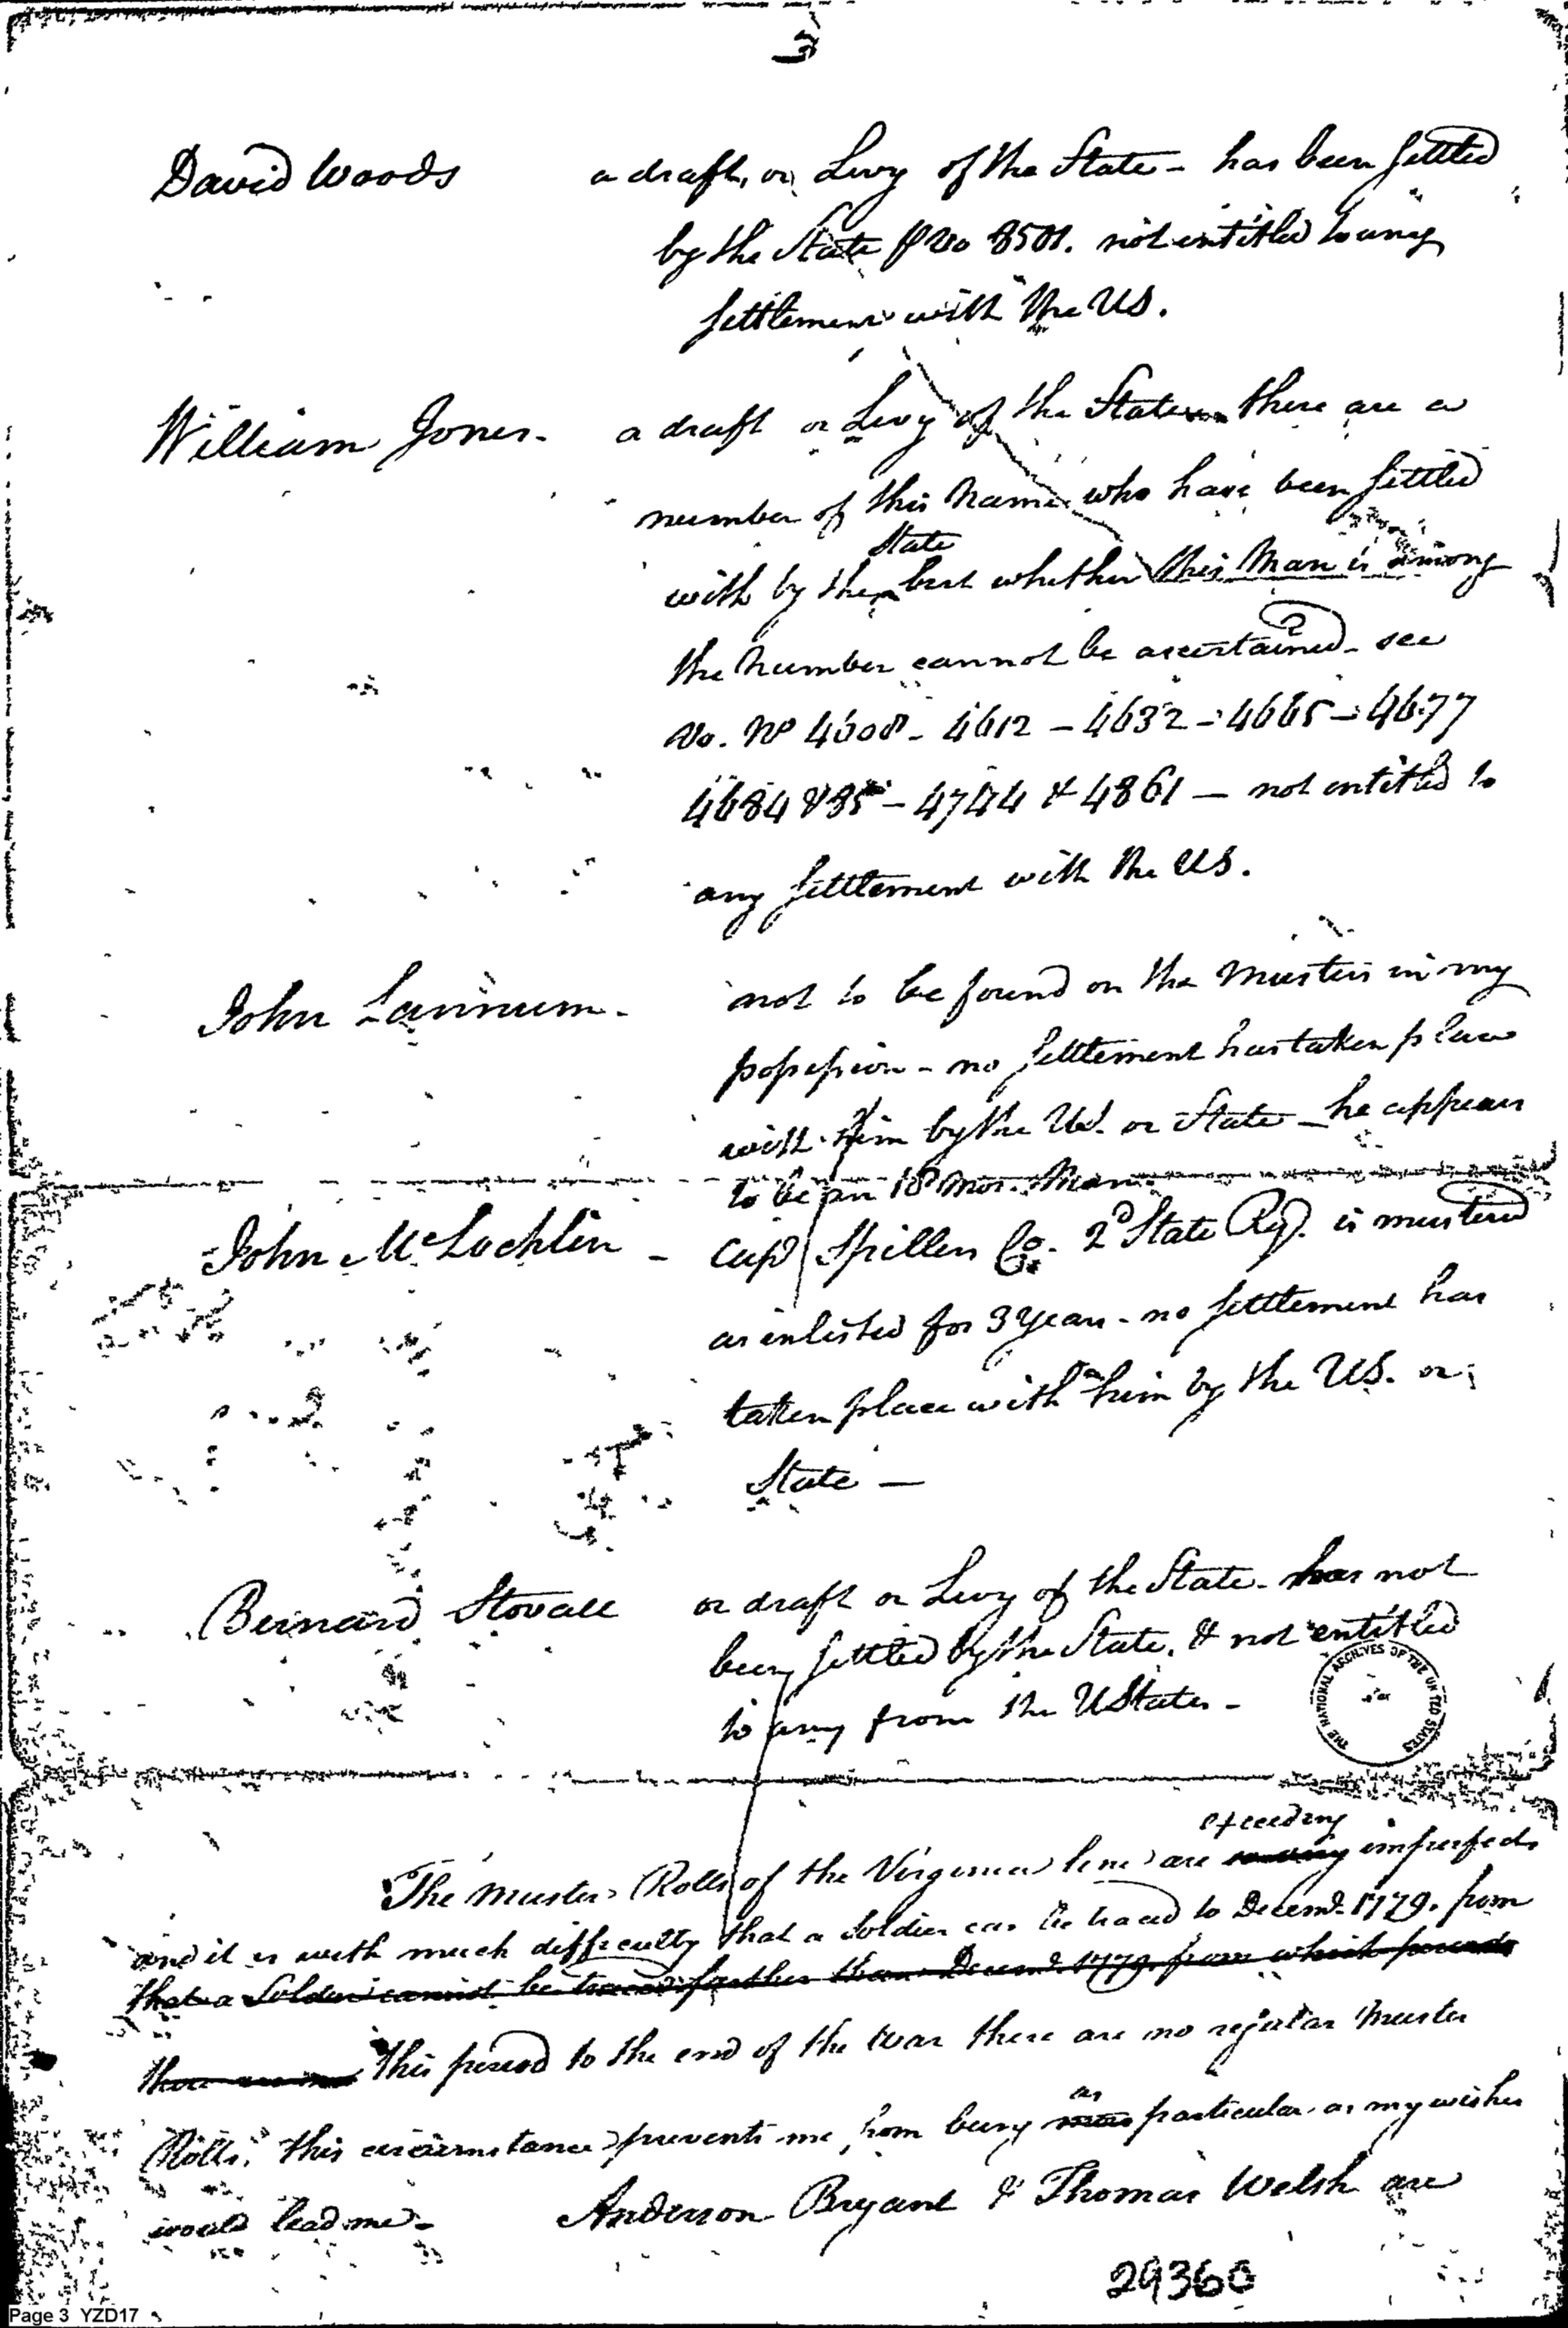 3
David Woods a draft, or Levy of the State - has been settled
by the State p Vo 8501. not entitled to any
settlement with the US.
William Jones - a draft or Levy of the State there are a
number of this Name who have been settled
State
with by the but whether this Man is among
the Number cannot be ascertained - see
Vo. No 4608 - 4612 - 4632 - 4665 - 4677
4684 & 85 - 4744 & 4861 - not entitled to
any settlement with the US.
John Lannum - not to be found on the Musters in my
possession - no settlement has taken place
with him by the US. or State - he appears
to be an 18 Mos. Man.
John McLochlin - Cap Spillers Co. 2d State Regt. is mustered
as enlisted for 3 years - no settlement has
taken place with him by the US. or
State -
Bernard Stovall or draft or Levy of the State - has not
been settled by the State, & not entitled
to any from the UStates -
THE NATIONAL ARCHIVES OF THE UNITED STATES
exceeding
The Muster Rolls of the Virginia line are imperfect
and it is with much difficulty that a Soldier can be traced to Decemr. 1779. from
that a Soldier cannot be traced farther than Decemr. 1779. from which periods
this period to the end of the War there are no regular Muster
as
Rolls. this circumstance prevents me from being particular as my wishes
would lead me - Anderson Bryant & Thomas Welsh are
29360
Page 3 YZD17